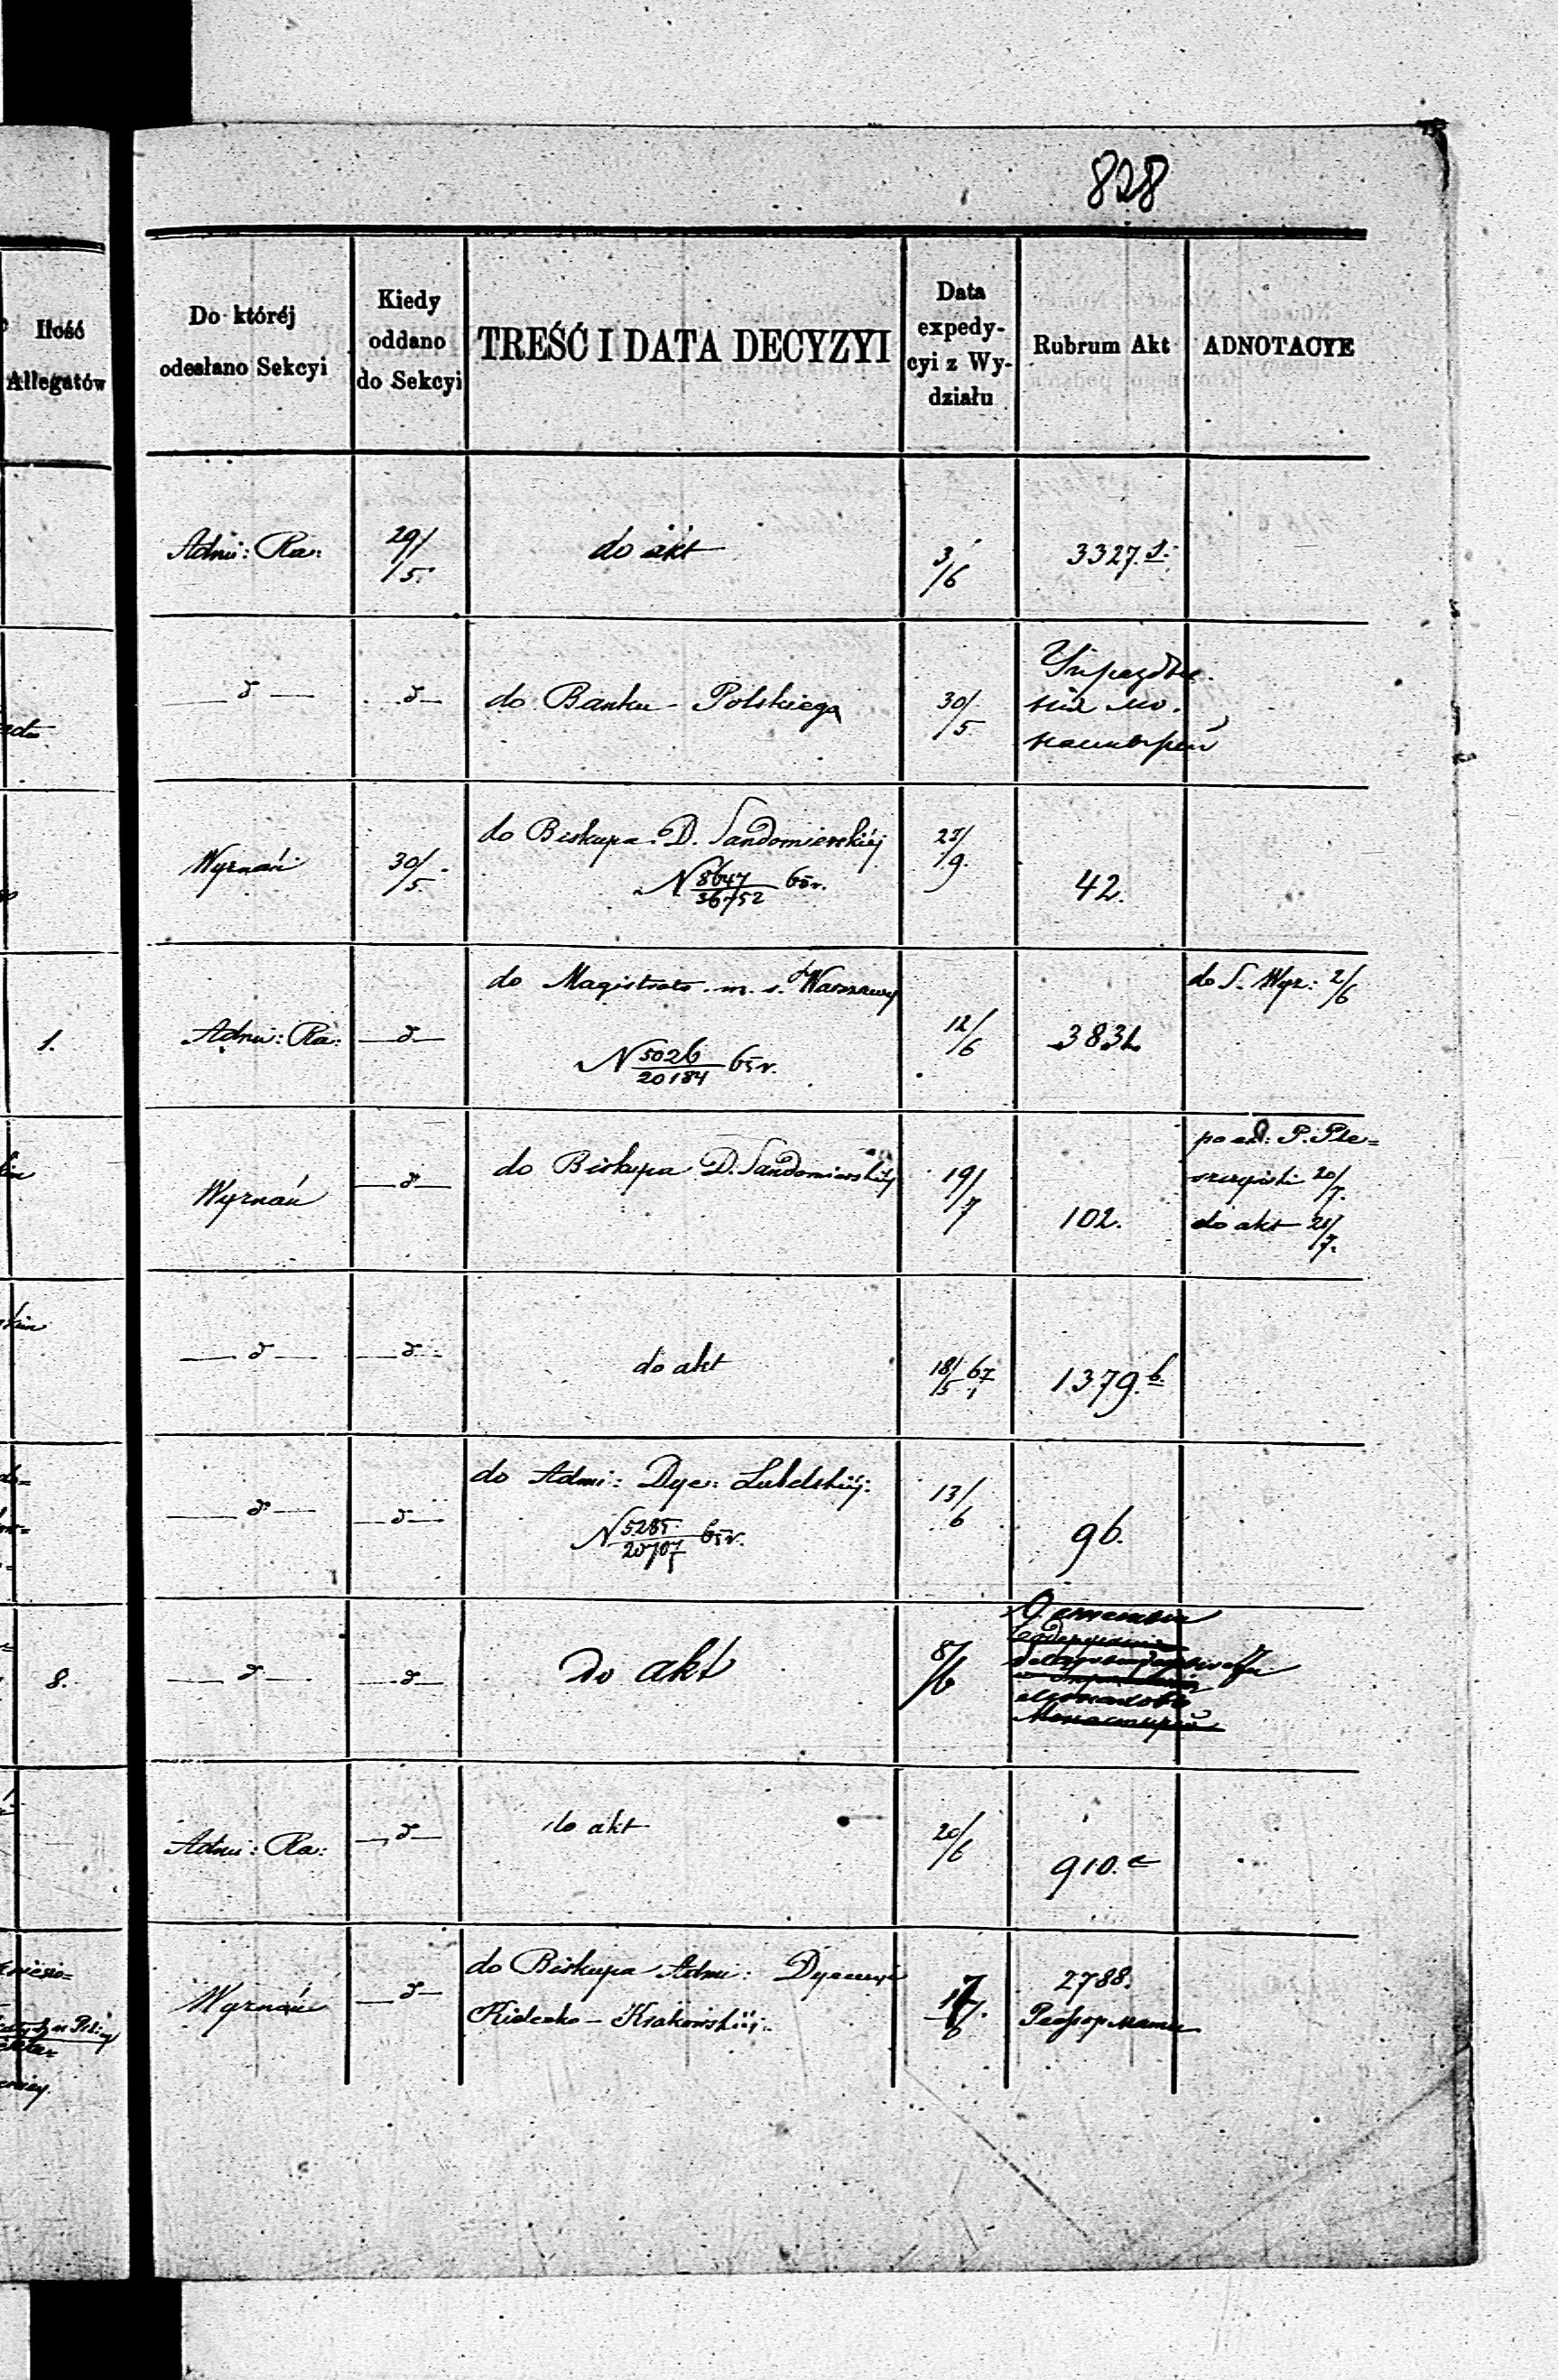 828
Ilość
Allegatów
Do któréj
odesłano Sekcyi
Kiedy
oddano
do Sekcyi
TREŚĆ I DATA DECYZYI
Data
expedy-
cyi z Wy-
działu
Rubrum Akt
ADNOTACYE
Admi: Ra: 29/5. do akt 3/6 3327.
— d — — d — do Banku Polskiego 30/5
Wyznań 30/5. do Biskupa D. Sandomierskiéj /9. 42.
N 8647/36752 65 r.
1. Admi: Ra: — d — do Magistratu m. s. Warszawy 12/6 do S. Wyz: 2/6
N 5026/20184 65 r.
Wyznań — d — do Biskupa D. Sandomierskiéj 19/7 102. P. Ple=
szczyński 20/7.
do akt 21/7.
— d — — d — do akt 18/5 67 1379.b
— d — — d — do Admi: Dye: Lubelskiéj: 13/6 96.
N 5285/20707 65 r.
8. — d — — d — Do akt 8/6
Admi: Ra: — d — do akt 20/6 910.c
Wyznań — d — do Biskupa Admi: Dyecezyi 2788.
Kielecko-Krakowskiéj.